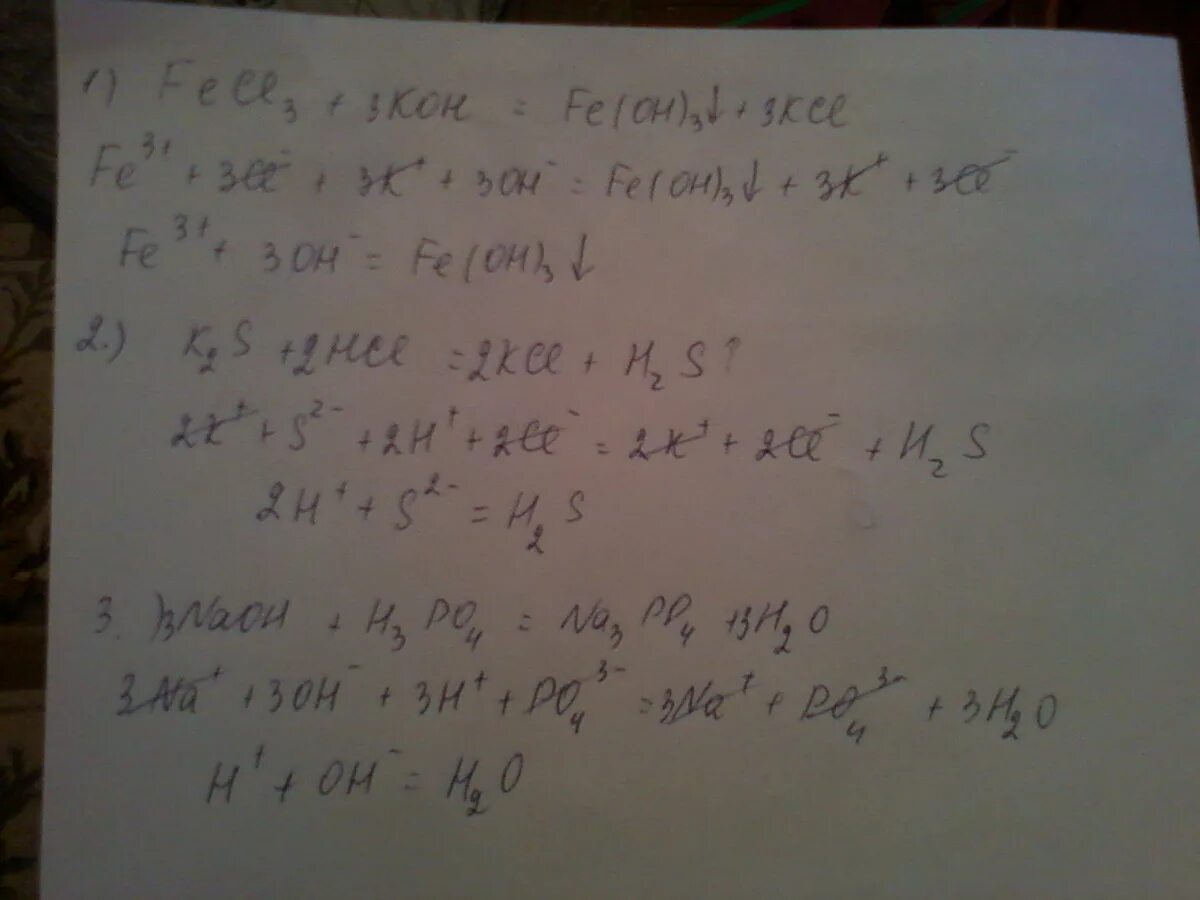 1) FeCl₃ + 3KOH = Fe(OH)₃↓ + 3KCl
Fe³⁺ + 3Cl⁻ + 3K⁺ + 3OH⁻ = Fe(OH)₃↓ + 3K⁺ + 3Cl⁻
Fe³⁺ + 3OH⁻ = Fe(OH)₃↓
2.) K₂S + 2HCl = 2KCl + H₂S↑
2K⁺ + S²⁻ + 2H⁺ + 2Cl⁻ = 2K⁺ + 2Cl⁻ + H₂S
2H⁺ + S²⁻ = H₂S
3.) 3NaOH + H₃PO₄ = Na₃PO₄ + 3H₂O
3Na⁺ + 3OH⁻ + 3H⁺ + PO₄³⁻ = 3Na⁺ + PO₄³⁻ + 3H₂O
H⁺ + OH⁻ = H₂O